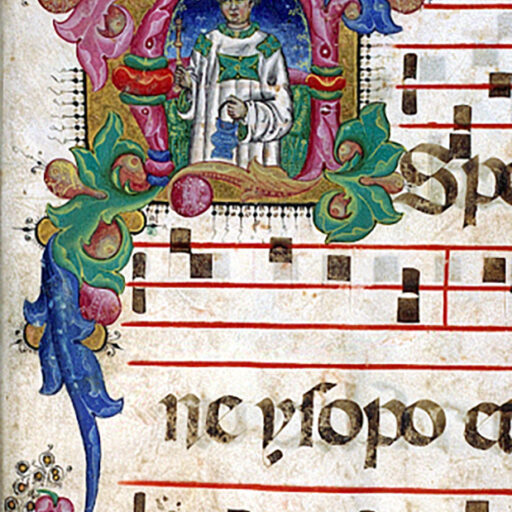 Spe
ne ysopo et